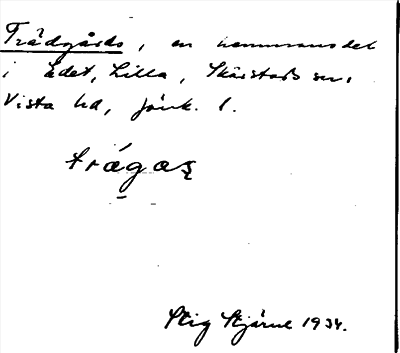 Trädgårds, en hemmansdel
i Edet, Lilla, Skärstads sn.
Vista hd, Jönk. l.
trágaʂ
Stig Stjärne 1934.